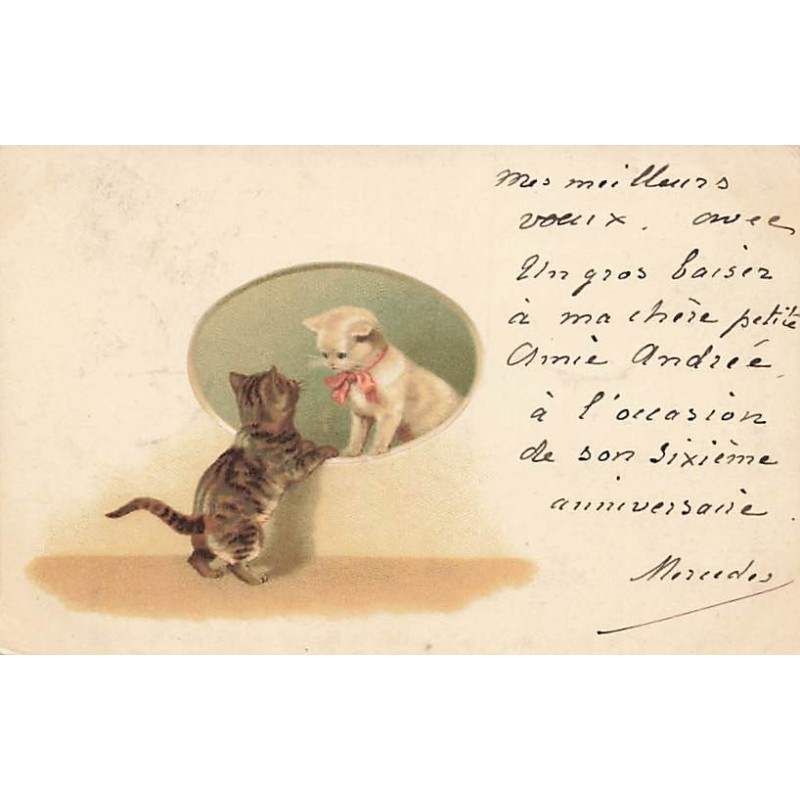 Mes meilleurs
voeux. avec
Un gros baiser
à ma chère petite
Amie Andrée
à l'occasion
de son sixième
anniversaire.
Mercedes